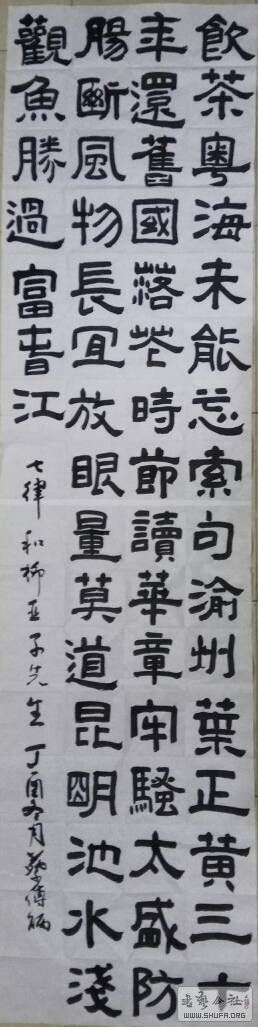 飲茶粵海未能忘索句渝州葉正黃三十
年還舊國落花時節讀華章牢騷太盛防
腸斷風物長宜放眼量莫道昆明池水淺
觀魚勝過富春江
七律 和柳亞子先生 丁酉冬月
書藝公社
WWW.SHUFA.ORG